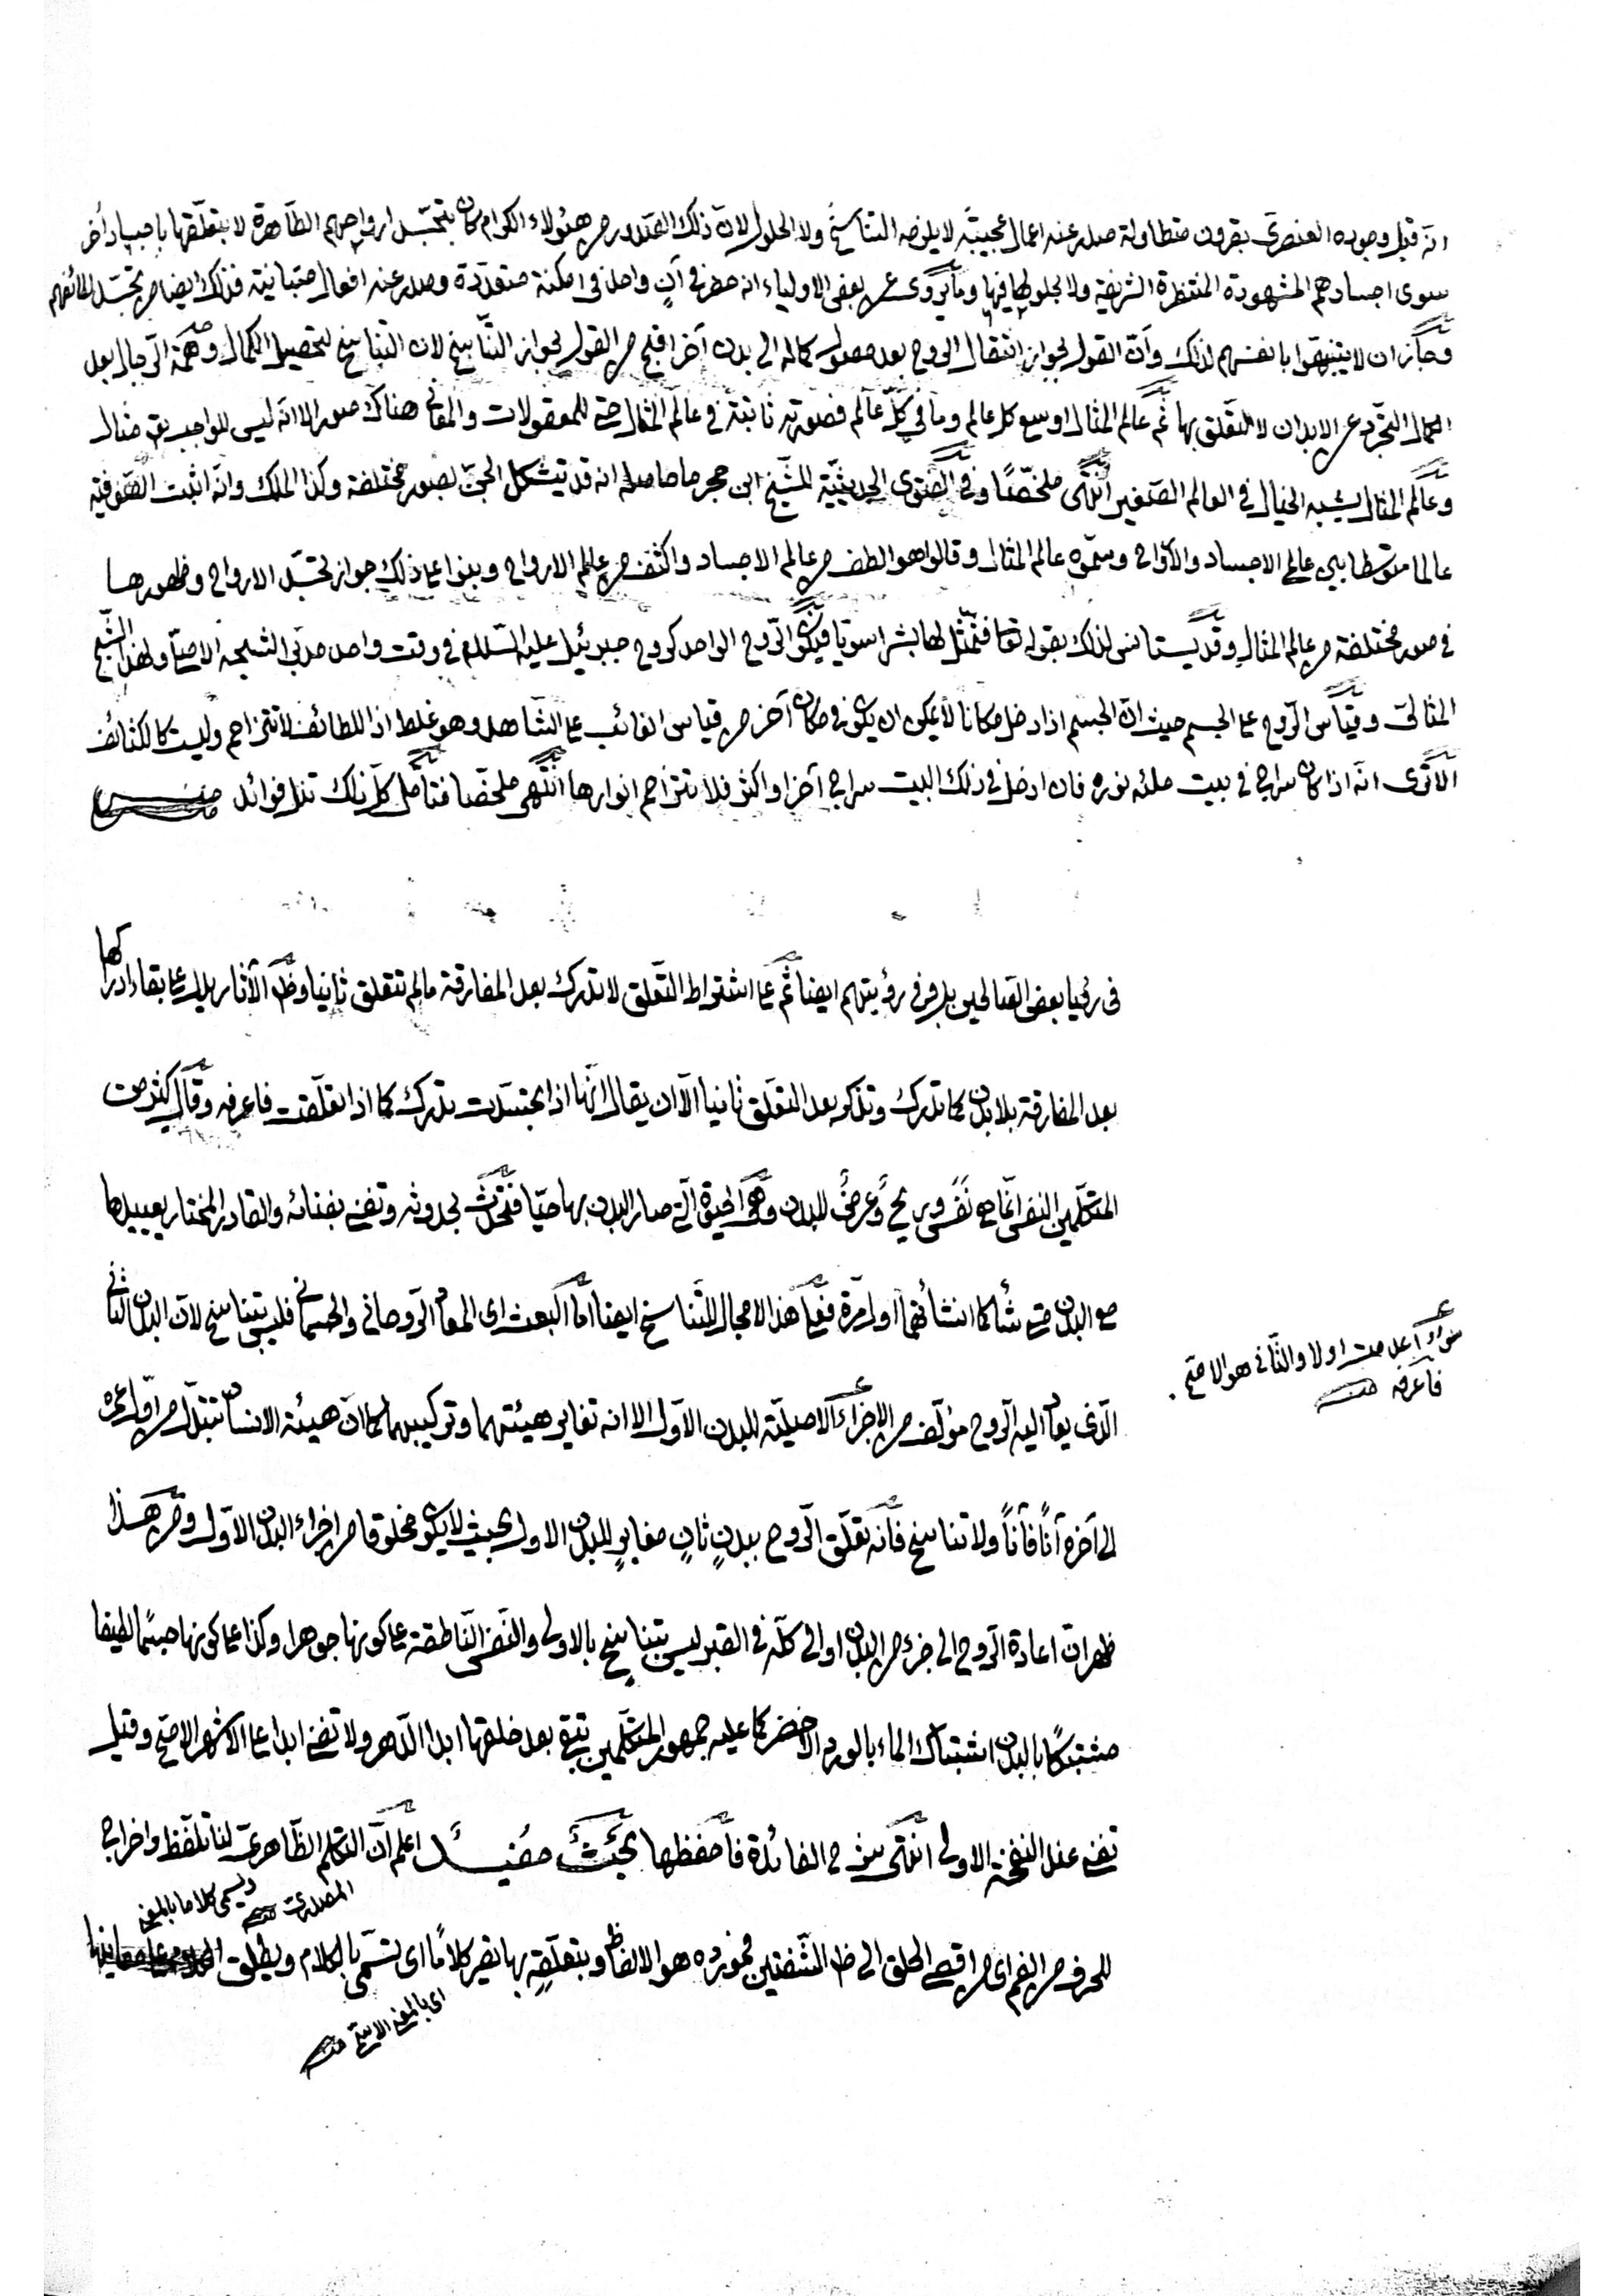 انه قبل وجوده العنصرى بقرون متطاولة صدر عنه اعمال عجيبة لا يلزمه التناسخ ولا الحلول لان ذلك الصدور من هئولاء الكرام كان بتجسّد ارواحهم الطاهرة لا بتعلّقها باجساد أُخر
سوى اجسادهم المشهودة المنتظرة الشريفة ولا بحلولها فيها وما يروى عن بعض الاولياء انه حضر فى آنٍ واحد فى امكنة متعدّدة وصدر عنه افعال متباينة فذلك ايضا من تجسّد لطائفهم
وجاز ان لا يتنبهوا بانفسهم لذلك وانّ القول بجواز انتقال الروح بعد حصول كماله الى بدن آخر اقبح من القول بجواز التناسخ لان التناسخ لتحصيل الكمال وهمّة الرّجال بعد
الكمال التجرد عن الابدان لا التعلق بها ثم عالم المثال اوسع كل عالم وما فى كلّ عالم فصورته ثابتة فى عالم المثال حتى للمعقولات والمعانى هناك صور الا انه ليس للواجب تعالى مثال
وعالم المثال يشبه الخيال فى العالم الصغير انتهى ملخّصًا وفى الفتوى الحديثيّة للشيخ ابن حجر ما حاصله انه قد يتشكل الجنّ بصور مختلفة وكذا الملك وانه اثبت الصوفية
عالما متوسّطا بين عالم الاجساد والارواح وسمّوه عالم المثال وقالوا هو الطف من عالم الاجساد واكثف من عالم الارواح وبنوا على ذلك جواز تجسّد الارواح وظهورها
فى صور مختلفة من عالم المثال وقد يستانس لذلك بقوله تعالى فتمثّل لها بشرا سويّا فيكون الرّوح الواحد كروح جبرئيل عليه السّلام فى وقت واحد مدبّر الشبحه الاصلى ولهذا الشبح
المثالى وقياس الرّوح على الجسم حيث انّ الجسم اذا دخل مكانا لا يمكن ان يكون فى مكان آخر من قياس الغائب على الشاهد وهو غلط اذ اللطائف لا تتزاحم وليست كالكثائف
الا ترى انه اذا كان سراج فى بيت ملئه نوره فان ادخل فى ذلك البيت سراج آخر او اكثر فلا تتزاحم انوارها انتهى ملخّصا فتأمّل كلّ ذاك تنل فوائد منه
فى رؤيا بعض الصالحين بل فى رؤيتهم ايضا ثم على اشتراط التعلق لا تدرك بعد المفارقة ما لم تتعلق ثانيا وظ الآثار يدل على بقاء ادراكها
بعد المفارقة بلا بدن كما تدرك وتذكر بعد التعلق ثانيا الّا ان يقال انّها اذا تجسّدت تدرك كما اذا تعلّقت فاعرفه وقال كثير من
المتكلّمين النفس انّما هى نَفَس وريحٌ وعرضٌ للبدن وهى الحيوة الّتى صار البدن بها حيّا فتحدث بحدوثه وتفنى بفنائه والقادر المختار يعيدها
مع البدن متى شاء كما انشأهما اول مرة فعلى هذا لا مجال للتناسخ ايضا امّا البعث اى المعاد الرّوحانى والجسمانى فليس بتناسخ لانّ البدن الثانى
سواء اعدمت اولا والثانى هو الاصح
فاعرفه منه
الّذى يعاد اليه الرّوح مؤلّف من الاجزاء الاصليّة للبدن الاوّل الا انه تغاير هيئتهما وتركيبهما كما انّ هيئة الانسان تتبدّل من اوّل عمره
الى آخره آنًا فآنًا ولا تناسخ فانه تعلّق الرّوح ببدنٍ ثانٍ مغايرٍ للبدن الاول بحيث لا يكون مخلوقا من اجزاء البدن الاوّل ومن هذا
ظهر انّ اعادة الرّوح الى جزء من البدن او الى كلّه فى القبر ليس بتناسخ بالاولى والنفس النّاطقة على كونها جوهرا وكذا على كونها جسمًا لطيفا
مشتبكًا بالبدن اشتباك الماء بالورد الاخضر كما عليه جمهور المتكلّمين تبقى بعد خلقها ابد الدّهر ولا تفنى ابدا على الاشهر الاصحّ وقيل
تفنى عند النفخة الاولى انتهى من الفائدة فاحفظها بحثٌ مفيدٌ اعلم انّ التكلم الظّاهرىّ لنا تلفّظ واخراج
المصدرى منه
ويسمى كلاما بالمعنى
للحرف من الفم اى من اقصى الحلق الى ظ الشّفتين فموردُه هو الالفاظ وبتعلّقه بها تصير كلامًا اى تسمّى بالكلام ويطلق
اى بالمعنى الاسمى منه